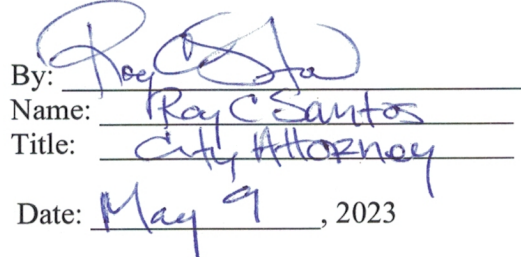 By: Roy C Sto
Name: Roy C Santos
Title: City Attorney
Date: May 9, 2023